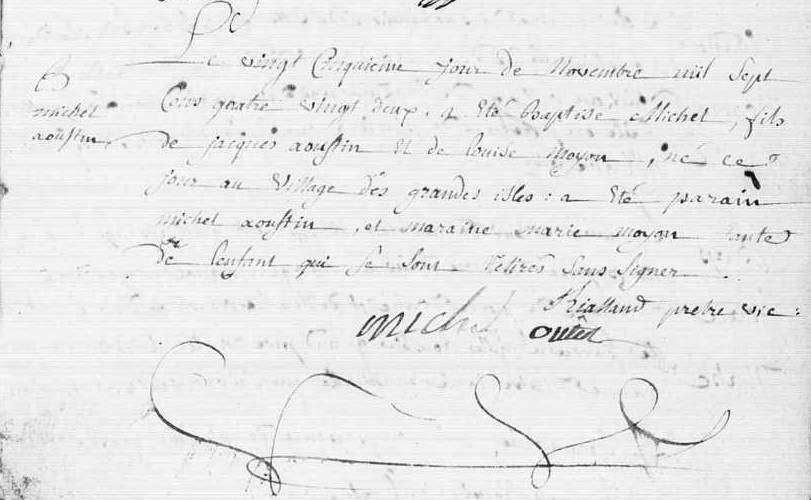 B
michel
aoustin
Le vingt Cinquieme jour de Novembre mil Sept
Cens quatre vingt deux, a été baptisé Michel, fils
de jacques aoustin et de louise moyon, né ce
jour au village des grandes isles : a été parain
michel aoustin, et maraine marie moyon tante
de l'enfant qui se sont retirés sans signer
Rialland pretre vic :
michel